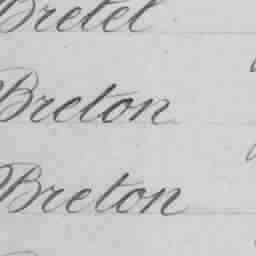 Bretel
Breton
Breton